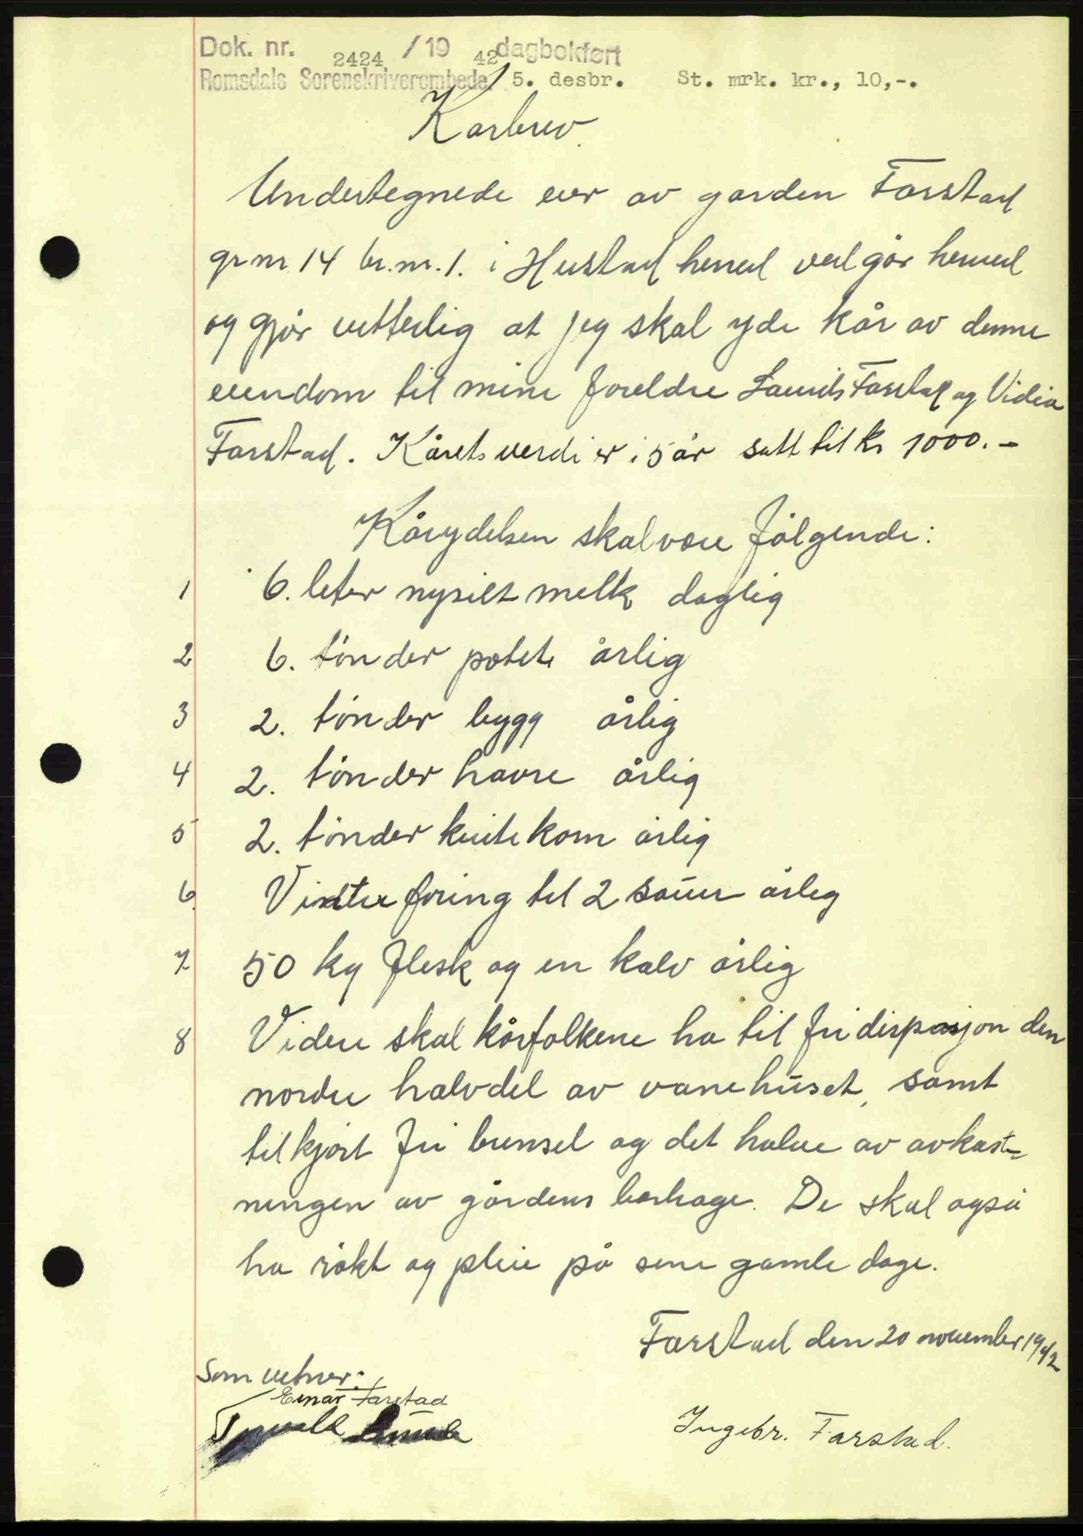 Dok. nr. 2424 / 19 42 dagbokført
Romsdals Sorenskriverembede 5. desbr. St. mrk. kr., 10,-.
Karbrev.
Undertegnede eier av garden Farstad
gr nr. 14 br. nr. 1. i Hustad herred vedgår herved
og gjør vitterlig at jeg skal yde kår av denne
eiendom til mine foreldre Laurits Farstad og Vidia
Farstad. Kårets verdi er i 5 år satt til kr 1000.-
Kårydelsen skal være følgende:
1 6. liter nysilt melk daglig
2 6. tønder potete årlig
3 2. tønder bygg årlig
4 2. tønder havre årlig
5 2. tønder kvitekorn årlig
6. Vinterforing til 2 sauer årleg
7 50 kg flesk og en kalv årlig
8 Videre skal kårfolkene ha til fri disposjon den
nordre halvdel av vånehuset, samt
tilkjørt fri brensel og det halve av avkast-
ningen av gårdens bærhage. De skal også
ha røkt og pleie på sine gamle dage.
Farstad den 20 november 1942
Som vitner:
Einar Farstad
Ingebr. Farstad.